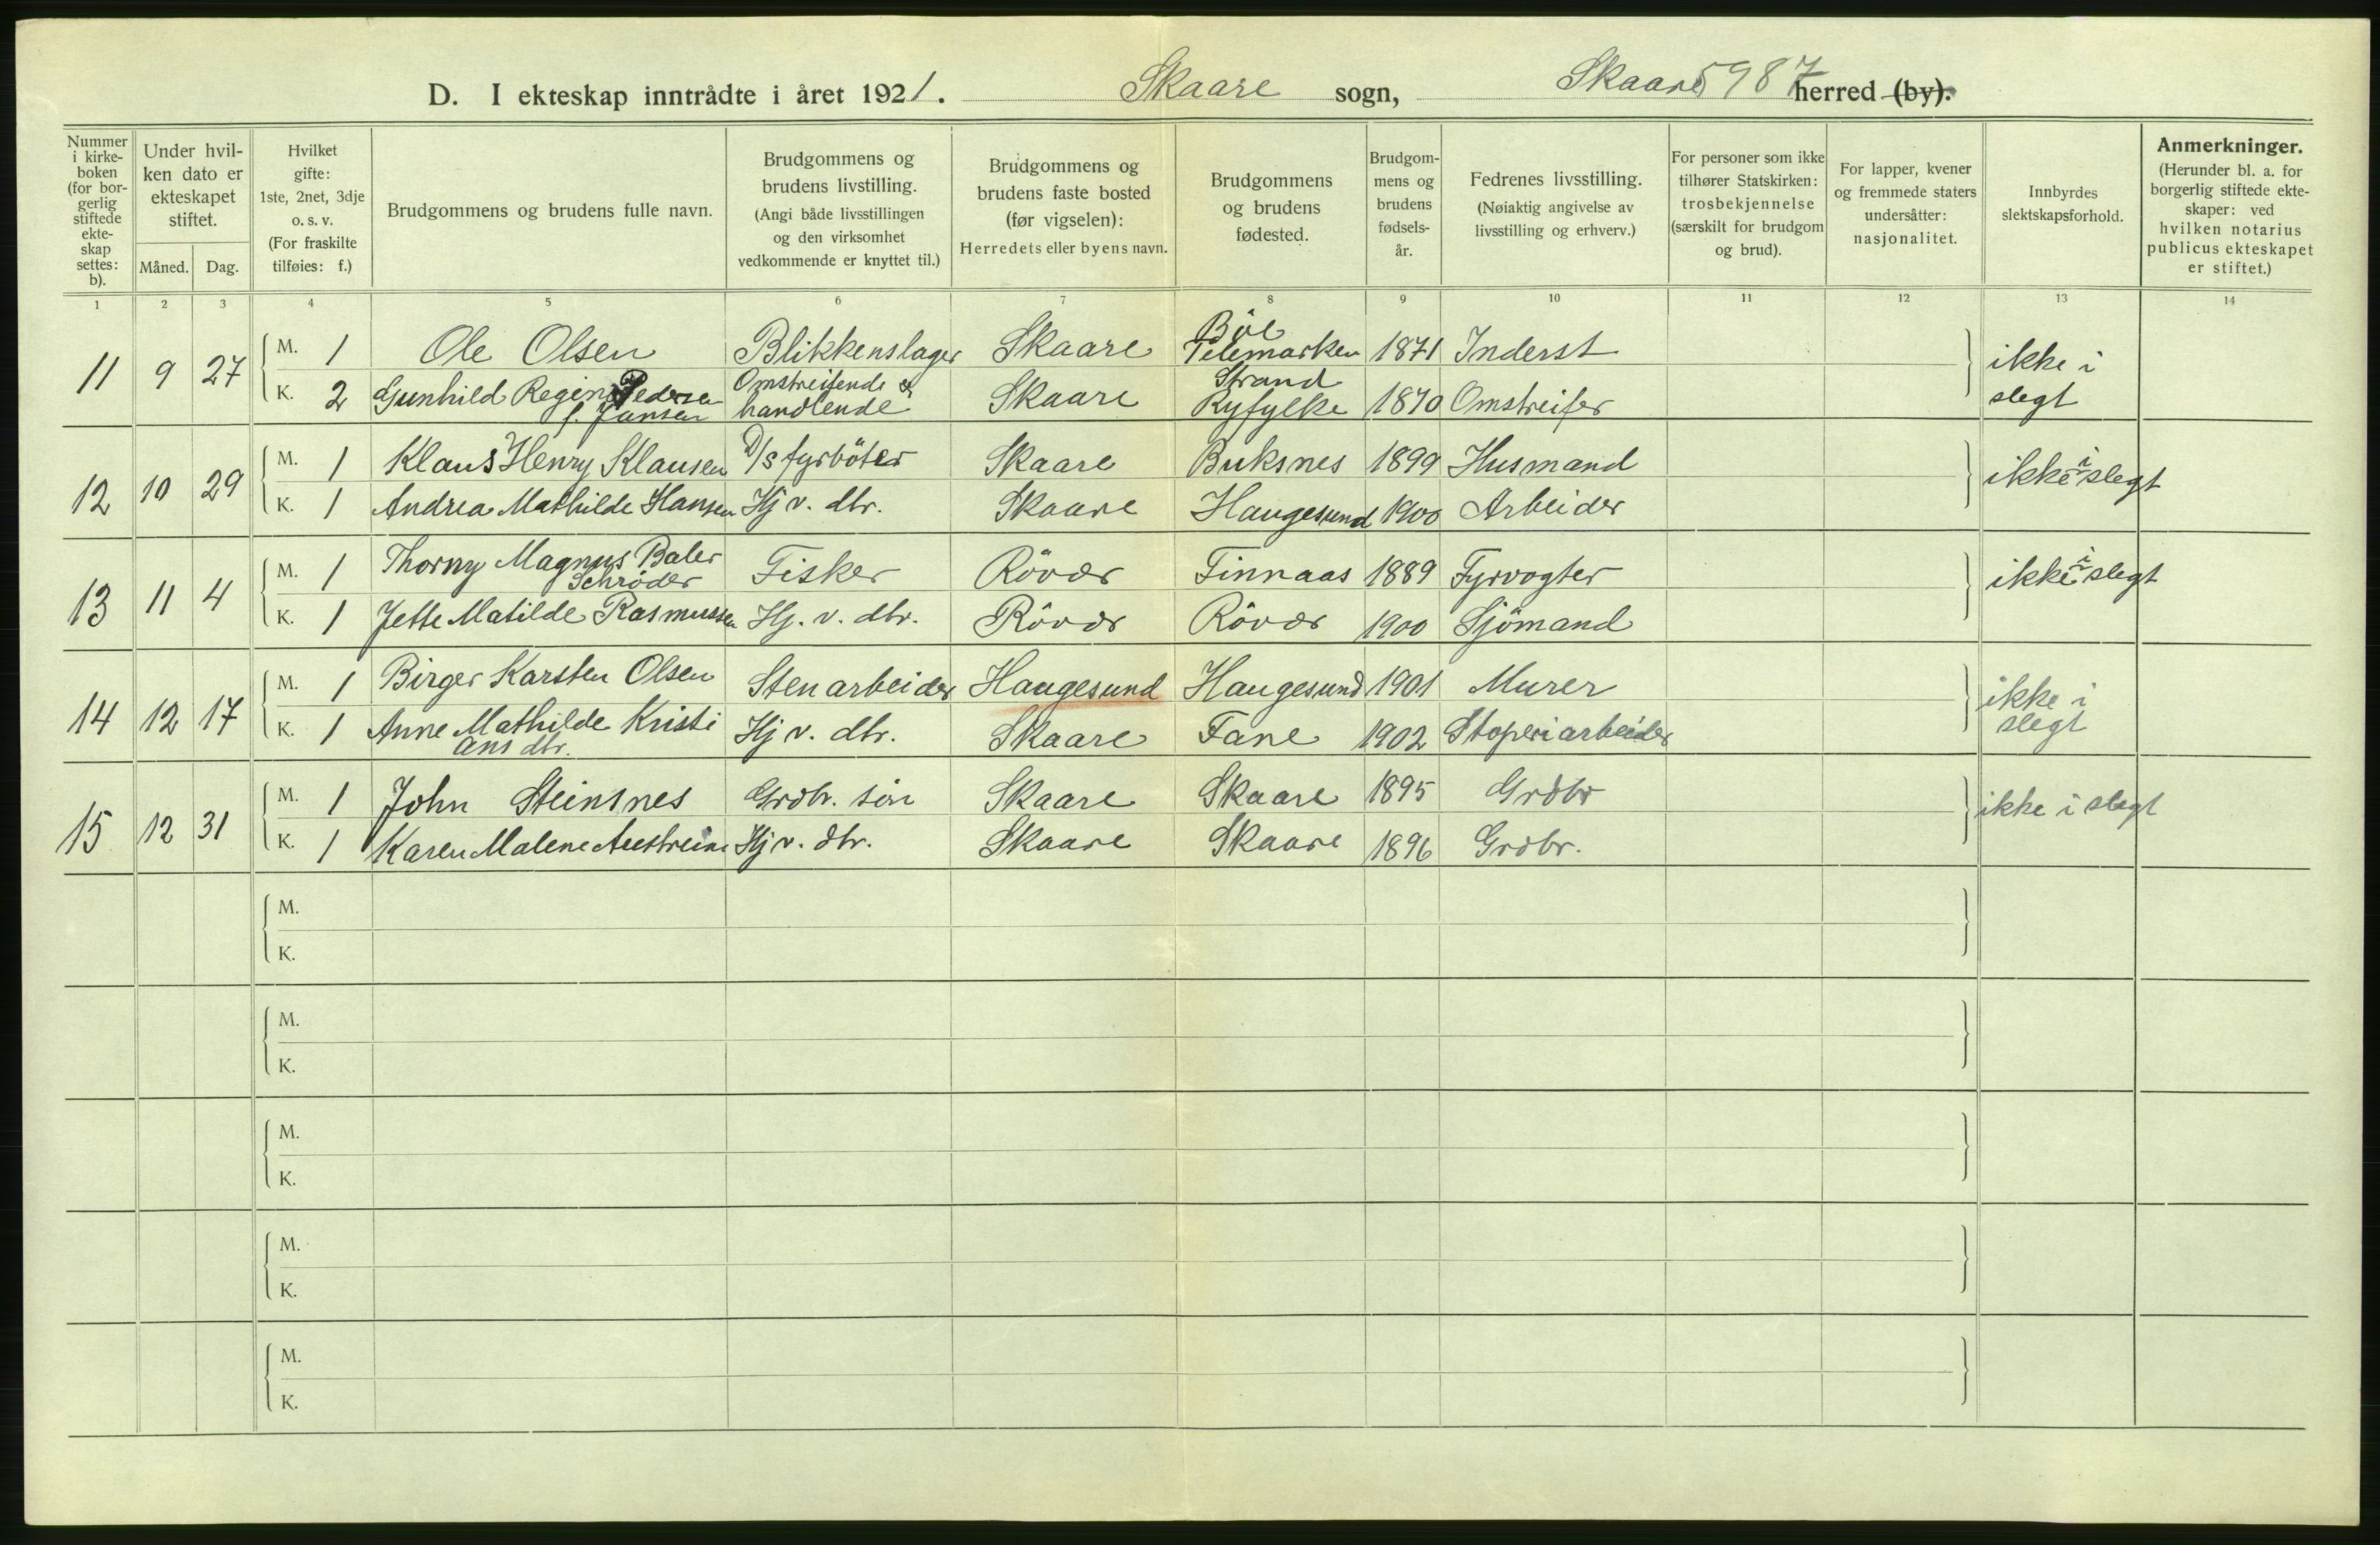 D. I ekteskap inntrådte i året 1921. Skaare sogn, Skaare 5987 herred (by).
Nummer i kirke-boken (for bor-gerlig stiftede ekte-skap settes: b).
Under hvil-ken dato er ekteskapet stiftet.
Måned. Dag.
Hvilket gifte: 1ste, 2net, 3dje o. s. v. (For fraskilte tilføies: f.)
Brudgommens og brudens fulle navn.
Brudgommens og brudens livstilling. (Angi både livsstillingen og den virksomhet vedkommende er knyttet til.)
Brudgommens og brudens faste bosted (før vigselen): Herredets eller byens navn.
Brudgommens og brudens fødested.
Brudgom-mens og brudens fødsels-år.
Fedrenes livsstilling. (Nøiaktig angivelse av livsstilling og erhverv.)
For personer som ikke tilhører Statskirken: trosbekjennelse (særskilt for brudgom og brud).
For lapper, kvener og fremmede staters undersåtter: nasjonalitet.
Innbyrdes slektskapsforhold.
Anmerkninger. (Herunder bl. a. for borgerlig stiftede ekte-skaper: ved hvilken notarius publicus ekteskapet er stiftet.)
1 2 3 4 5 6 7 8 9 10 11 12 13 14
11 9 27 M. 1 Ole Olsen Blikkenslager Skaare Böe Telemarken 1871 Inderst ikke i slegt
K. 2 Gunhild Regine Pedersen f. Jansen Omstreifende & handlende Skaare Strand Ryfylke 1870 Omstreifer
12 10 29 M. 1 Klaus Henry Klausen D/s fyrböter Skaare Buksnes 1899 Husmand ikke i slegt
K. 1 Andrea Mathilde Hansen Hj v. dtr. Skaare Haugesund 1900 Arbeider
13 11 4 M. 1 Thorny Magnus Baler Schröder Fisker Rövær Finnaas 1889 Fyrvogter ikke i slegt
K. 1 Jette Matilde Rasmussen Hj. v. dtr. Rövær Rövær 1900 Sjömand
14 12 17 M. 1 Birger Karsten Olsen Stenarbeider Haugesund Haugesund 1901 Murer ikke i slegt
K. 1 Anne Mathilde Kristi ans dtr. Hj v. dtr. Skaare Fane 1902 Stoperiarbeider
15 12 31 M. 1 John Steinsnes Grdbr. sön Skaare Skaare 1895 Grdbr ikke i slegt
K. 1 Karen Malene Austreim Hj v. dtr. Skaare Skaare 1896 Grdbr.
M.
K.
M.
K.
M.
K.
M.
K.
M.
K.